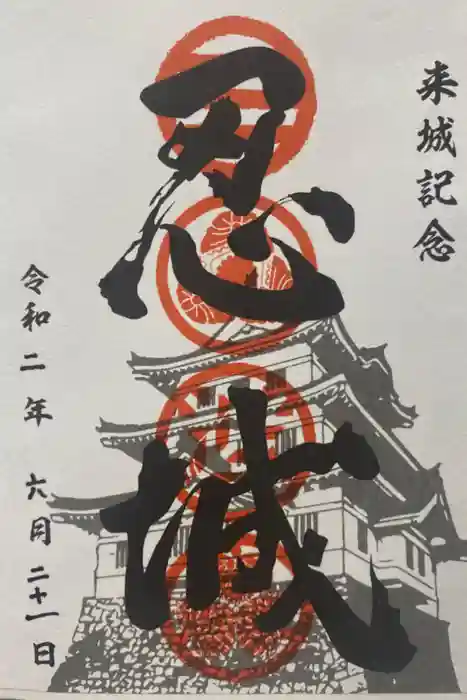 来城記念
忍城
令和二年 六月二十一日